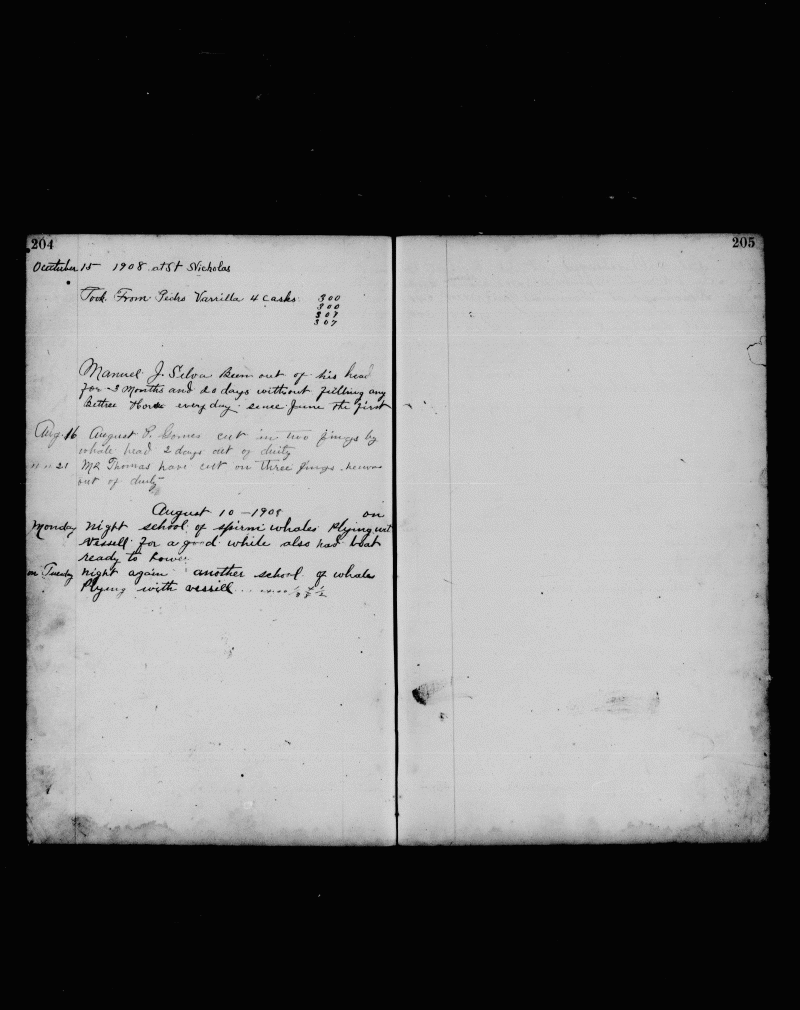 204
205
October 15 1908 at St Nicholas
Took From Pedro Varrilla 4 casks 300
300
307
307
Manuel J. Selva Been out of his head
for 3 Months and 20 days without filling any
Bettree Horse every day since June the first
Aug. 16 August P. Gomes cut in two fings by
whale head 2 days out of duity
" " 21 MR Thomas have cut on three fings he was
out of duity
August 10 - 1908 on
Monday night school of spirm whales Plying wit
vessell for a good while also had boat
ready to Lower
on Tuesday night again another school of whale
Plying with vessill